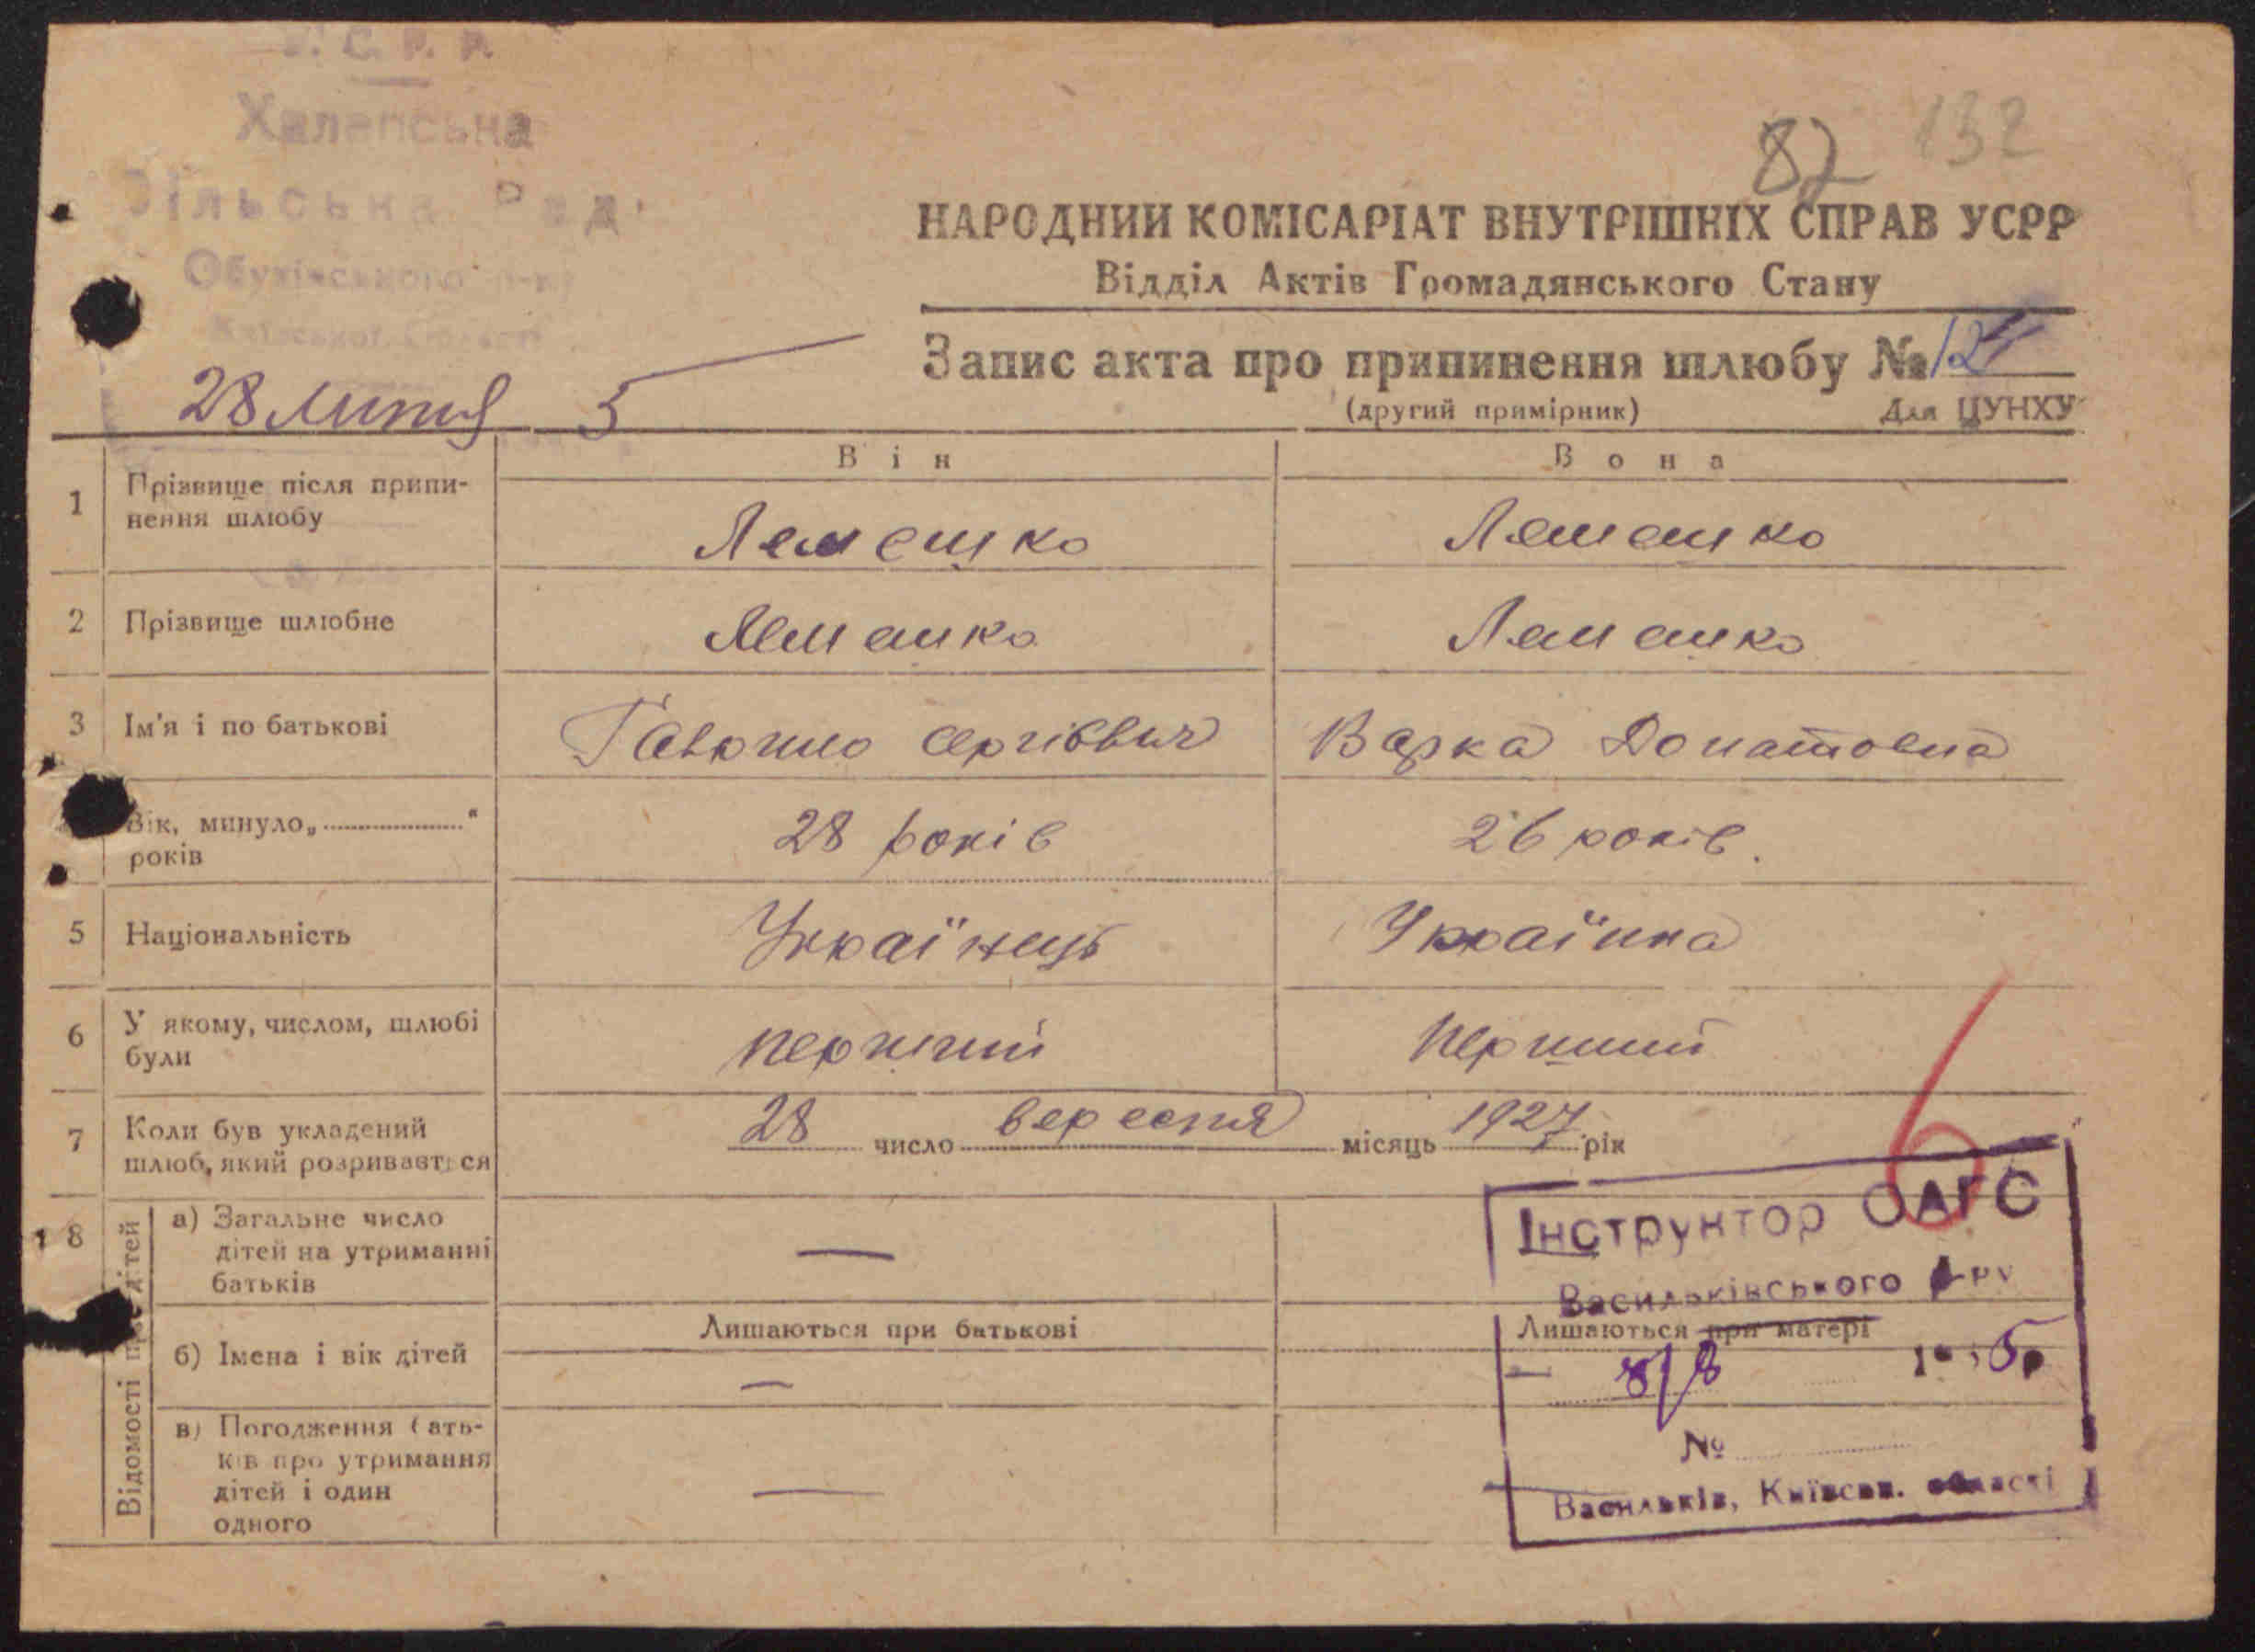 У. С. Р. Р.
Халепська
Сільська Рад
Обухівського р-ну
Київської області
28 липня 5
82 132
НАРОДНИЙ КОМІСАРІАТ ВНУТРІШНІХ СПРАВ УСРР
Відділ Актів Громадянського Стану
Запис акта про припинення шлюбу №
(другий примірник) Для ЦУНХУ
Він Вона
1 Прізвище після припи-
нення шлюбу
Лемешко Лемешко
2 Прізвище шлюбне Лемешко Лемешко
3 Ім'я і по батькові Сергійович Варка Донатовна
Вік, минуло „ “
років
28 років 26 років.
5 Національність Українець Українка
6 У якому, числом, шлюбі
були
перший перший
7 Коли був укладений
шлюб, який розривається
28 число вересня місяць 1927 рік
6
8 Відомості про дітей
а) Загальне число
дітей на утриманні
батьків
—
б) Імена і вік дітей
Лишаються при батькові Лишаються при матері
— —
в) Погодження бать-
ків про утримання
дітей і один
одного
—
Інструктор ОАГС
Васильківського р-ну
8/8 5р
№
Васильків, Київськ. області